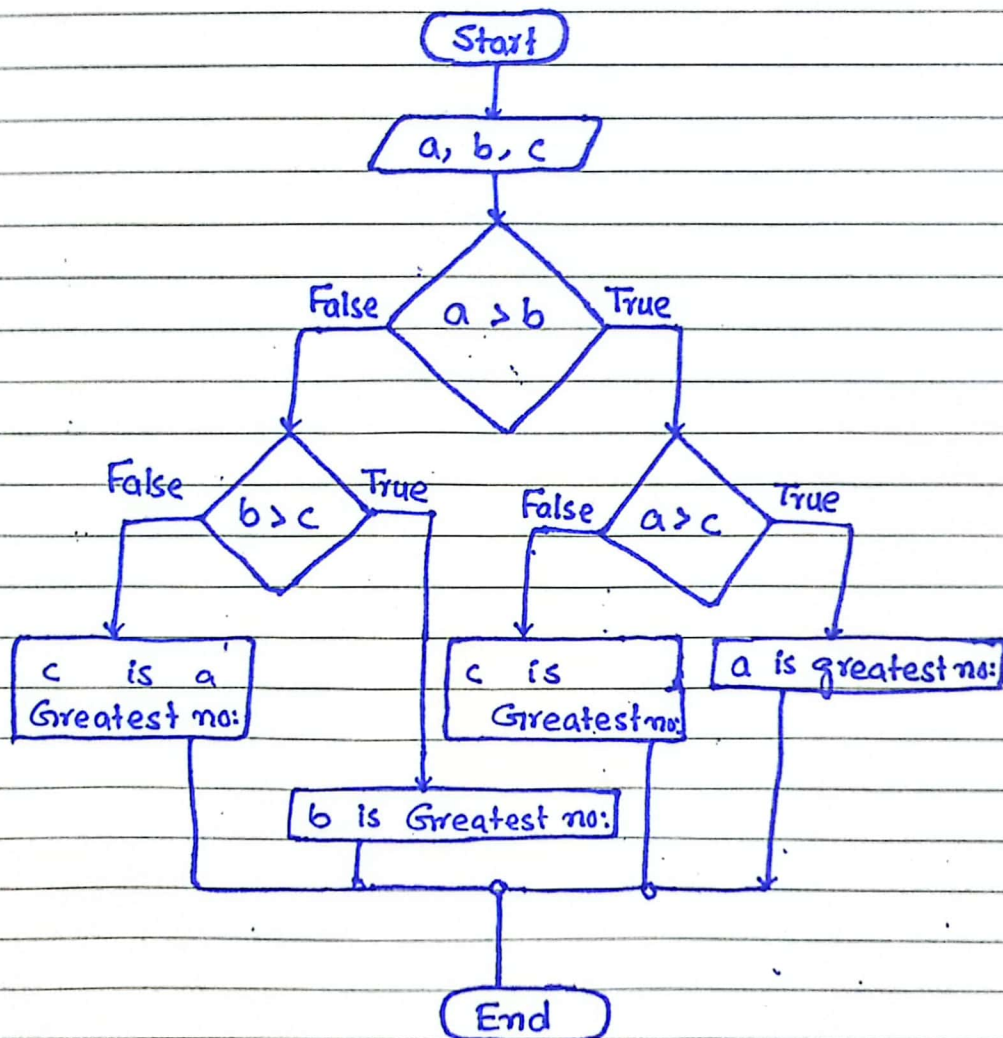 Start
a, b, c
a > b
False
True
b > c
False
True
a > c
False
True
c is a
Greatest no:
b is Greatest no:
c is
Greatest no:
a is greatest no:
End